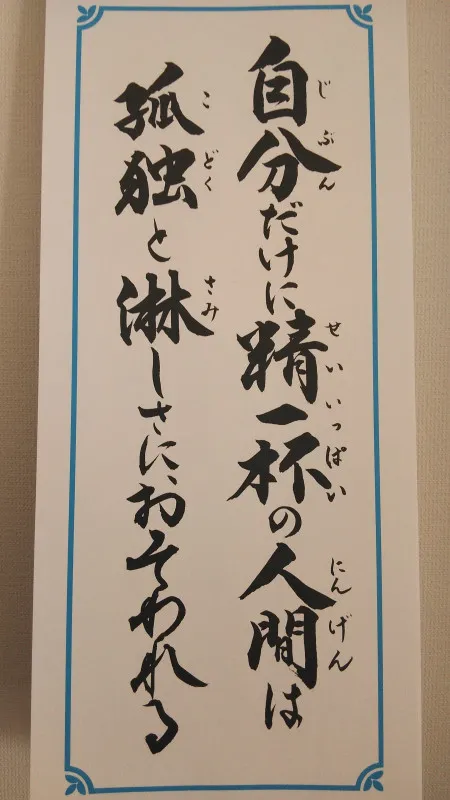 自分だけに精一杯の人間は
じぶん せいいっぱい にんげん
孤独と淋しさに、おそわれる
こどく さみ